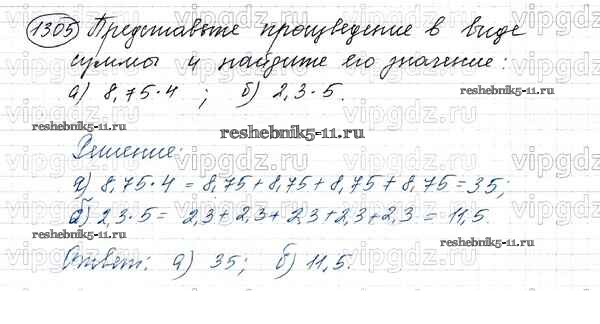 1305 Представьте произведение в виде
суммы и найдите его значение:
а) 8,75·4 ; б) 2,3·5.
reshebnik5-11.ru reshebnik5-11.ru
reshebnik5-11.ru
Решение:
а) 8,75·4 = 8,75+8,75+8,75+8,75=35;
б) 2,3·5= 2,3+2,3+2,3+2,3+2,3 = 11,5.
reshebnik5-11.ru reshebnik5-11.ru
Ответ: а) 35; б) 11,5.